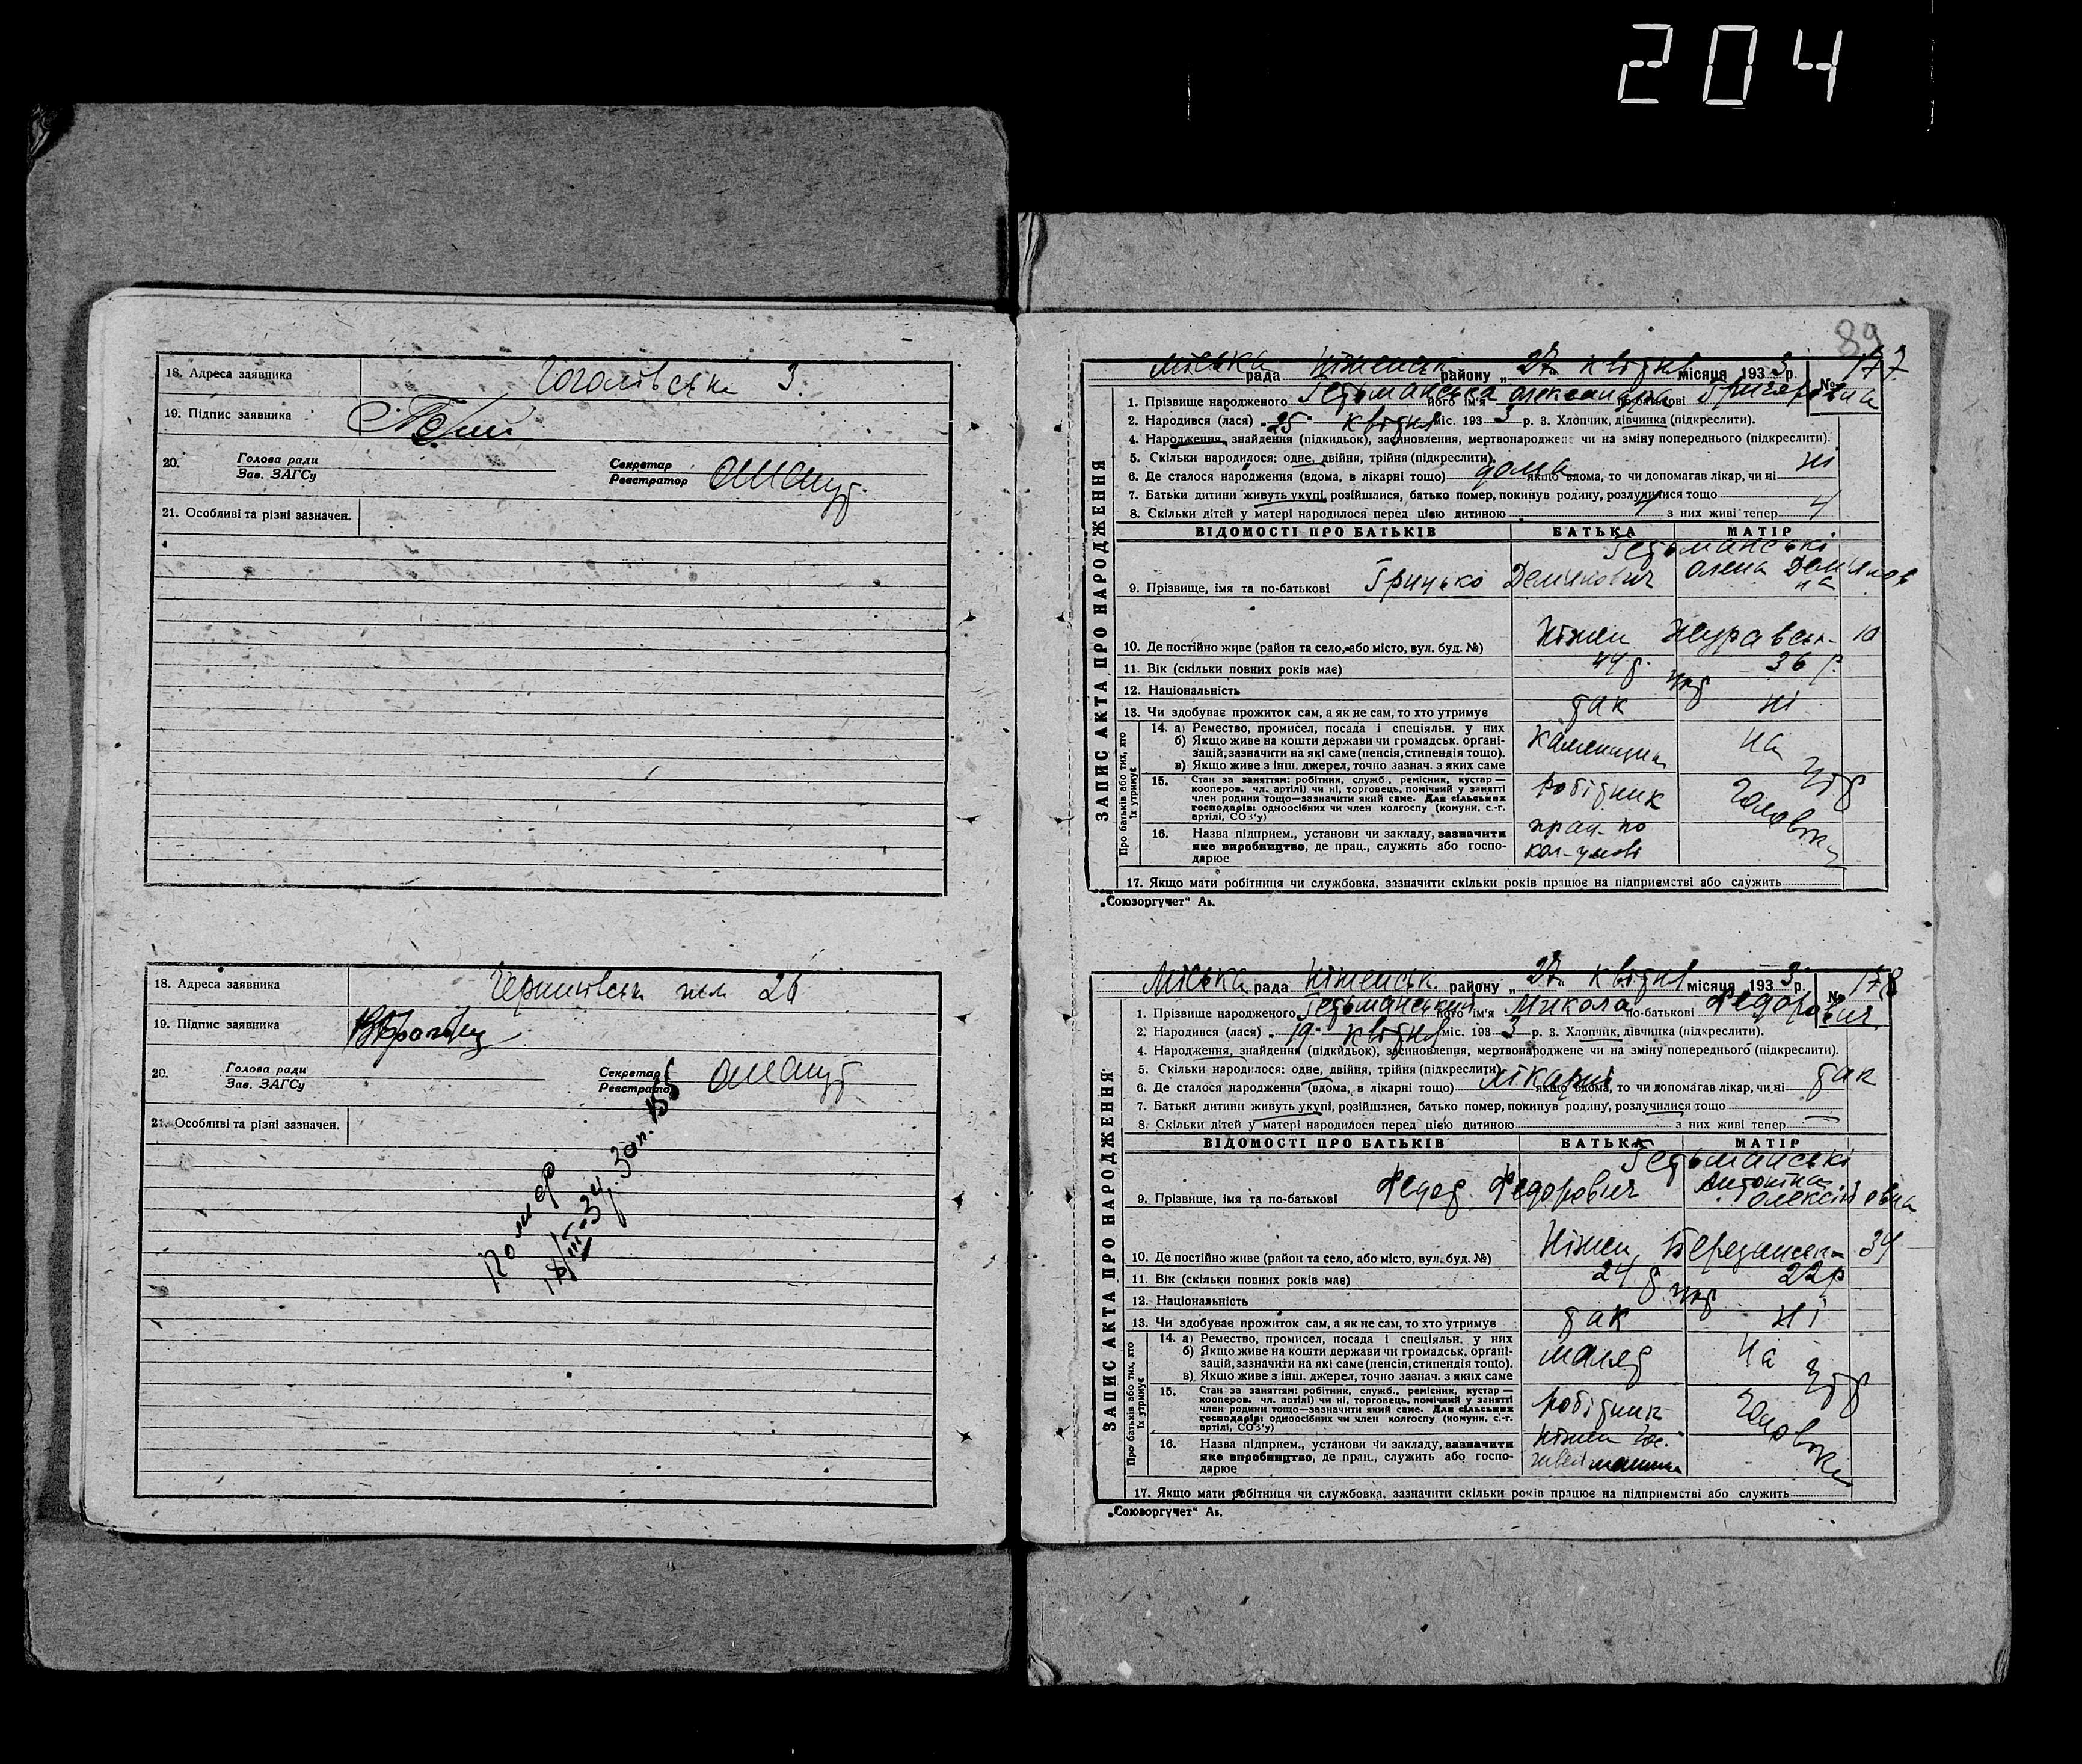 204
18. Адреса заявника Гоголівська 3
19. Підпис заявника
20. Голова ради
Зав. ЗАГСу
Секретар
Реєстратор
21. Особливі та різні зазначен.
18. Адреса заявника Чернигівськ 26
19. Підпис заявника
20. Голова ради
Зав. ЗАГСу
Секретар
Реєстратор
21. Особливі та різні зазначен.
Помер
18/III-34 р. Зап. 155
89
ЗАПИС АКТА ПРО НАРОДЖЕННЯ
Міська рада Ніженськ району „27 квітня місяця 1933 р. № 177
1. Прізвище народженого Гетьманська його ім'я Олександра по-батькові Григоровна
2. Народився (лася) „25 квітня міс. 1933 р. 3. Хлопчик, дівчинка (підкреслити).
4. Народження, знайдення (підкидьок), засиновлення, мертвонароджене чи на зміну попереднього (підкреслити).
5. Скільки народилося: одне, двійня, трійня (підкреслити).
6. Де сталося народження (вдома, в лікарні тощо) дома якщо вдома, то чи допомагав лікар, чи ні ні
7. Батьки дитини живуть укупі, розійшлися, батько помер, покинув родину, розлучилися тощо
8. Скільки дітей у матері народилося перед цією дитиною 4 з них живі тепер 4
ВІДОМОСТІ ПРО БАТЬКІВ БАТЬКА МАТІР
Гетьманські
9. Прізвище, імя та по-батькові Грицько Демянович Олена Демянов
на
10. Де постійно живе (район та село, або місто, вул. буд. №) Ніжен Журавськ- 10
11. Вік (скільки повних років має) 44 р. 36 р.
12. Національність укр
13. Чи здобуває прожиток сам, а як не сам, то хто утримує так ні
Про батьків або тих, хто їх утримує
14. а) Ремество, промисел, посада і спеціяльн. у них
б) Якщо живе на кошти держави чи громадськ. органі-
зацій, зазначити на які саме (пенсія, стипендія тощо).
в) Якщо живе з інш. джерел, точно зазнач. з яких саме
каменщик на утр
15. Стан за заняттям: робітник, служб., ремісник, кустар —
кооперов. чл. артілі) чи ні, торговець, помічний у занятті
член родини тощо—зазначити який саме. Для сільських
господарів: одноосібних чи член колгоспу (комуни, с.-г.
артілі, СОЗ'у)
робітник чоловіка
16. Назва підприєм., установи чи закладу, зазначити
яке виробництво, де прац., служить або госпо-
дарює
прац. по
17. Якщо мати робітниця чи службовка, зазначити скільки років працює на підприємстві або служить
„Союзоргучет“ Ав.
ЗАПИС АКТА ПРО НАРОДЖЕННЯ
Міська рада Ніженськ. району „27 квітня місяця 1933 р. № 178
1. Прізвище народженого Гетьманський його ім'я Микола по-батькові Федорович
2. Народився (лася) „19 квітня міс. 1933 р. 3. Хлопчик, дівчинка (підкреслити).
4. Народження, знайдення (підкидьок), засиновлення, мертвонароджене чи на зміну попереднього (підкреслити).
5. Скільки народилося: одне, двійня, трійня (підкреслити).
6. Де сталося народження (вдома, в лікарні тощо) лікарні якщо вдома, то чи допомагав лікар, чи ні так
7. Батьки дитини живуть укупі, розійшлися, батько помер, покинув родину, розлучилися тощо
8. Скільки дітей у матері народилося перед цією дитиною з них живі тепер —
ВІДОМОСТІ ПРО БАТЬКІВ БАТЬКА МАТІР
Гетьманські
9. Прізвище, імя та по-батькові Федор Федорович Антоніна
Олексіївна
10. Де постійно живе (район та село, або місто, вул. буд. №) Ніжен, Березанська 34
11. Вік (скільки повних років має) 24 р. 22 р
12. Національність укр
13. Чи здобуває прожиток сам, а як не сам, то хто утримує так ні
Про батьків або тих, хто їх утримує
14. а) Ремество, промисел, посада і спеціяльн. у них
б) Якщо живе на кошти держави чи громадськ. органі-
зацій, зазначити на які саме (пенсія, стипендія тощо).
в) Якщо живе з інш. джерел, точно зазнач. з яких саме
маляр на утр
15. Стан за заняттям: робітник, служб., ремісник, кустар —
кооперов. чл. артілі) чи ні, торговець, помічний у занятті
член родини тощо—зазначити який саме. Для сільських
господарів: одноосібних чи член колгоспу (комуни, с.-г.
артілі, СОЗ'у)
робітник чоловіка
16. Назва підприєм., установи чи закладу, зазначити
яке виробництво, де прац., служить або госпо-
дарює
Ніжен
17. Якщо мати робітниця чи службовка, зазначити скільки років працює на підприємстві або служить
„Союзоргучет“ Ав.